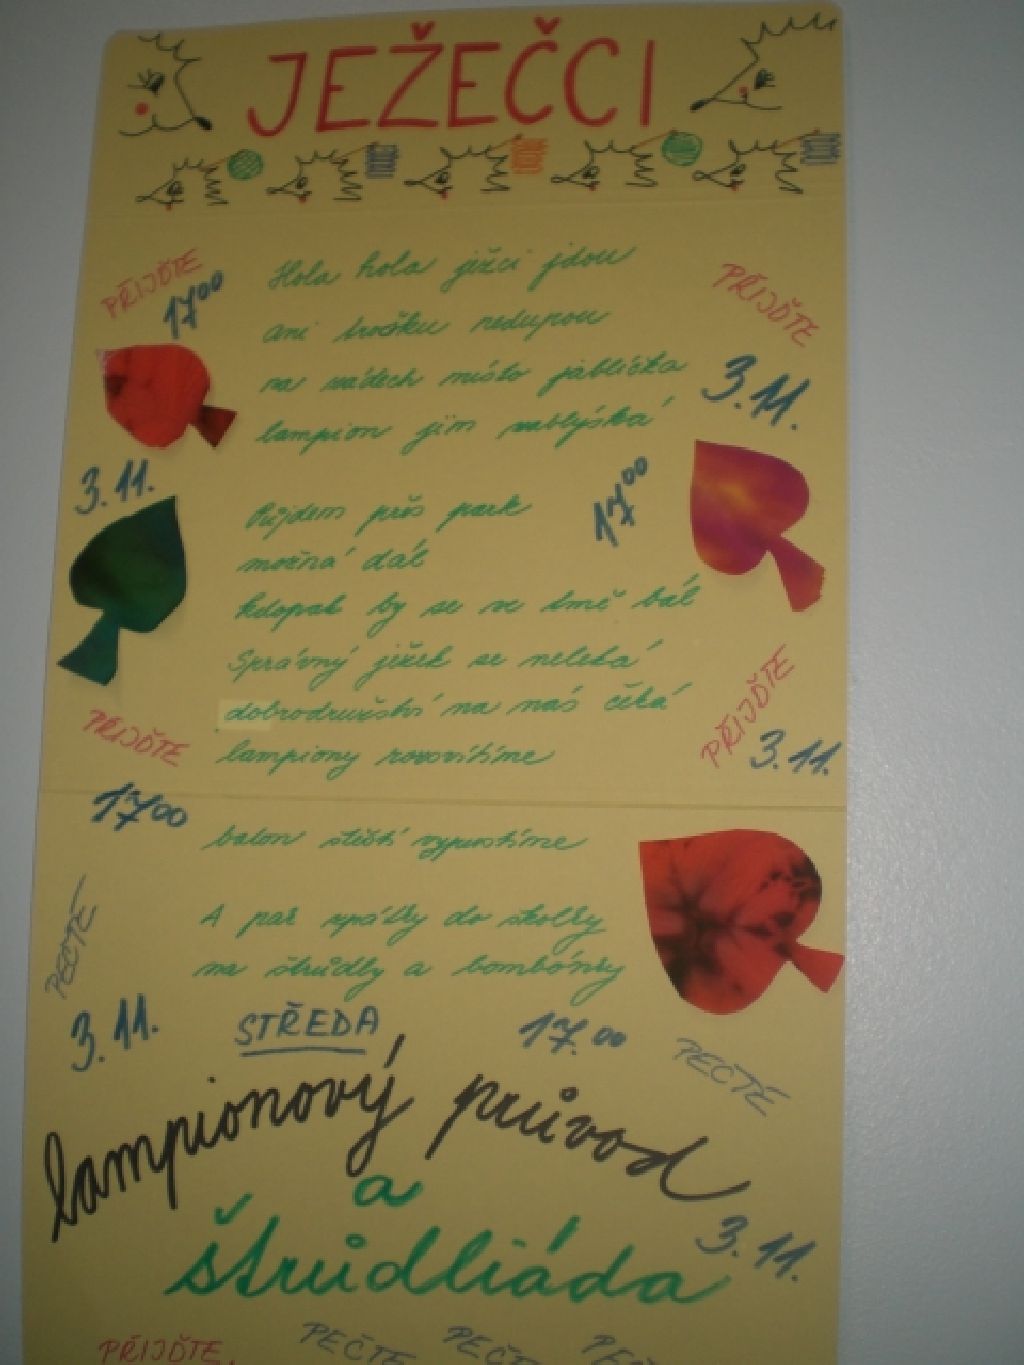 JEŽEČCI
PŘIJĎTE
17⁰⁰
Hola hola ježci jdou
ani trošku nedupou
na zádech místo jablíčka
lampion jim zablýská
PŘIJĎTE
3.11.
3.11.
17⁰⁰
Půjdem přes park
možná dál
kdopak by se ve tmě bál
Správný ježek se neleká
dobrodružství na nás čeká
lampiony rozsvítíme
PŘIJĎTE
3.11.
PŘIJĎTE
17⁰⁰
balon štěstí vypustíme
A pak zpátky do školky
na štrůdly a bombónky
PEČTE
3.11.
STŘEDA
17.⁰⁰
PEČTE
lampionový průvod
a
štrůdliáda
3.11.
PŘIJĎTE.
PEČTE
PEČTE